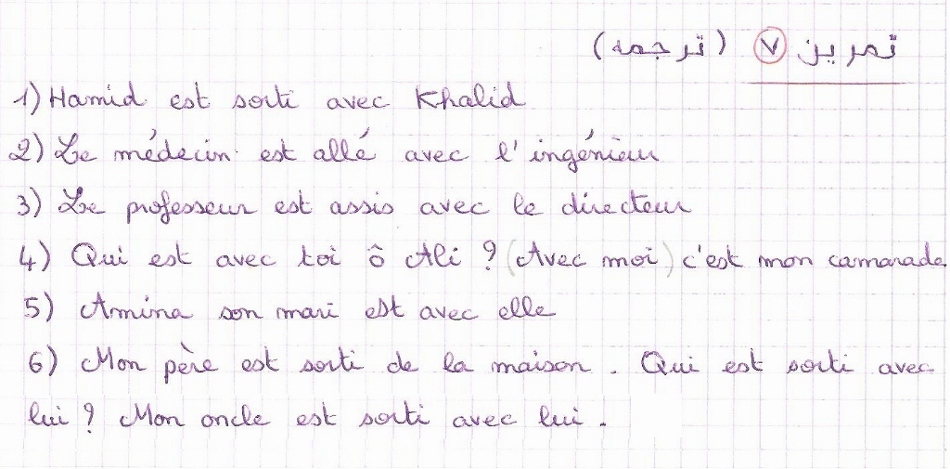 تمرين ٧ (ترجمه)
1) Hamid est sorti avec Khalid
2) Le médecin est allé avec l'ingénieur
3) Le professeur est assis avec le directeur
4) Qui est avec toi ô Ali ? (Avec moi) c'est mon camarade.
5) Amina son mari est avec elle
6) Mon père est sorti de la maison. Qui est sorti avec
lui ? Mon oncle est sorti avec lui.